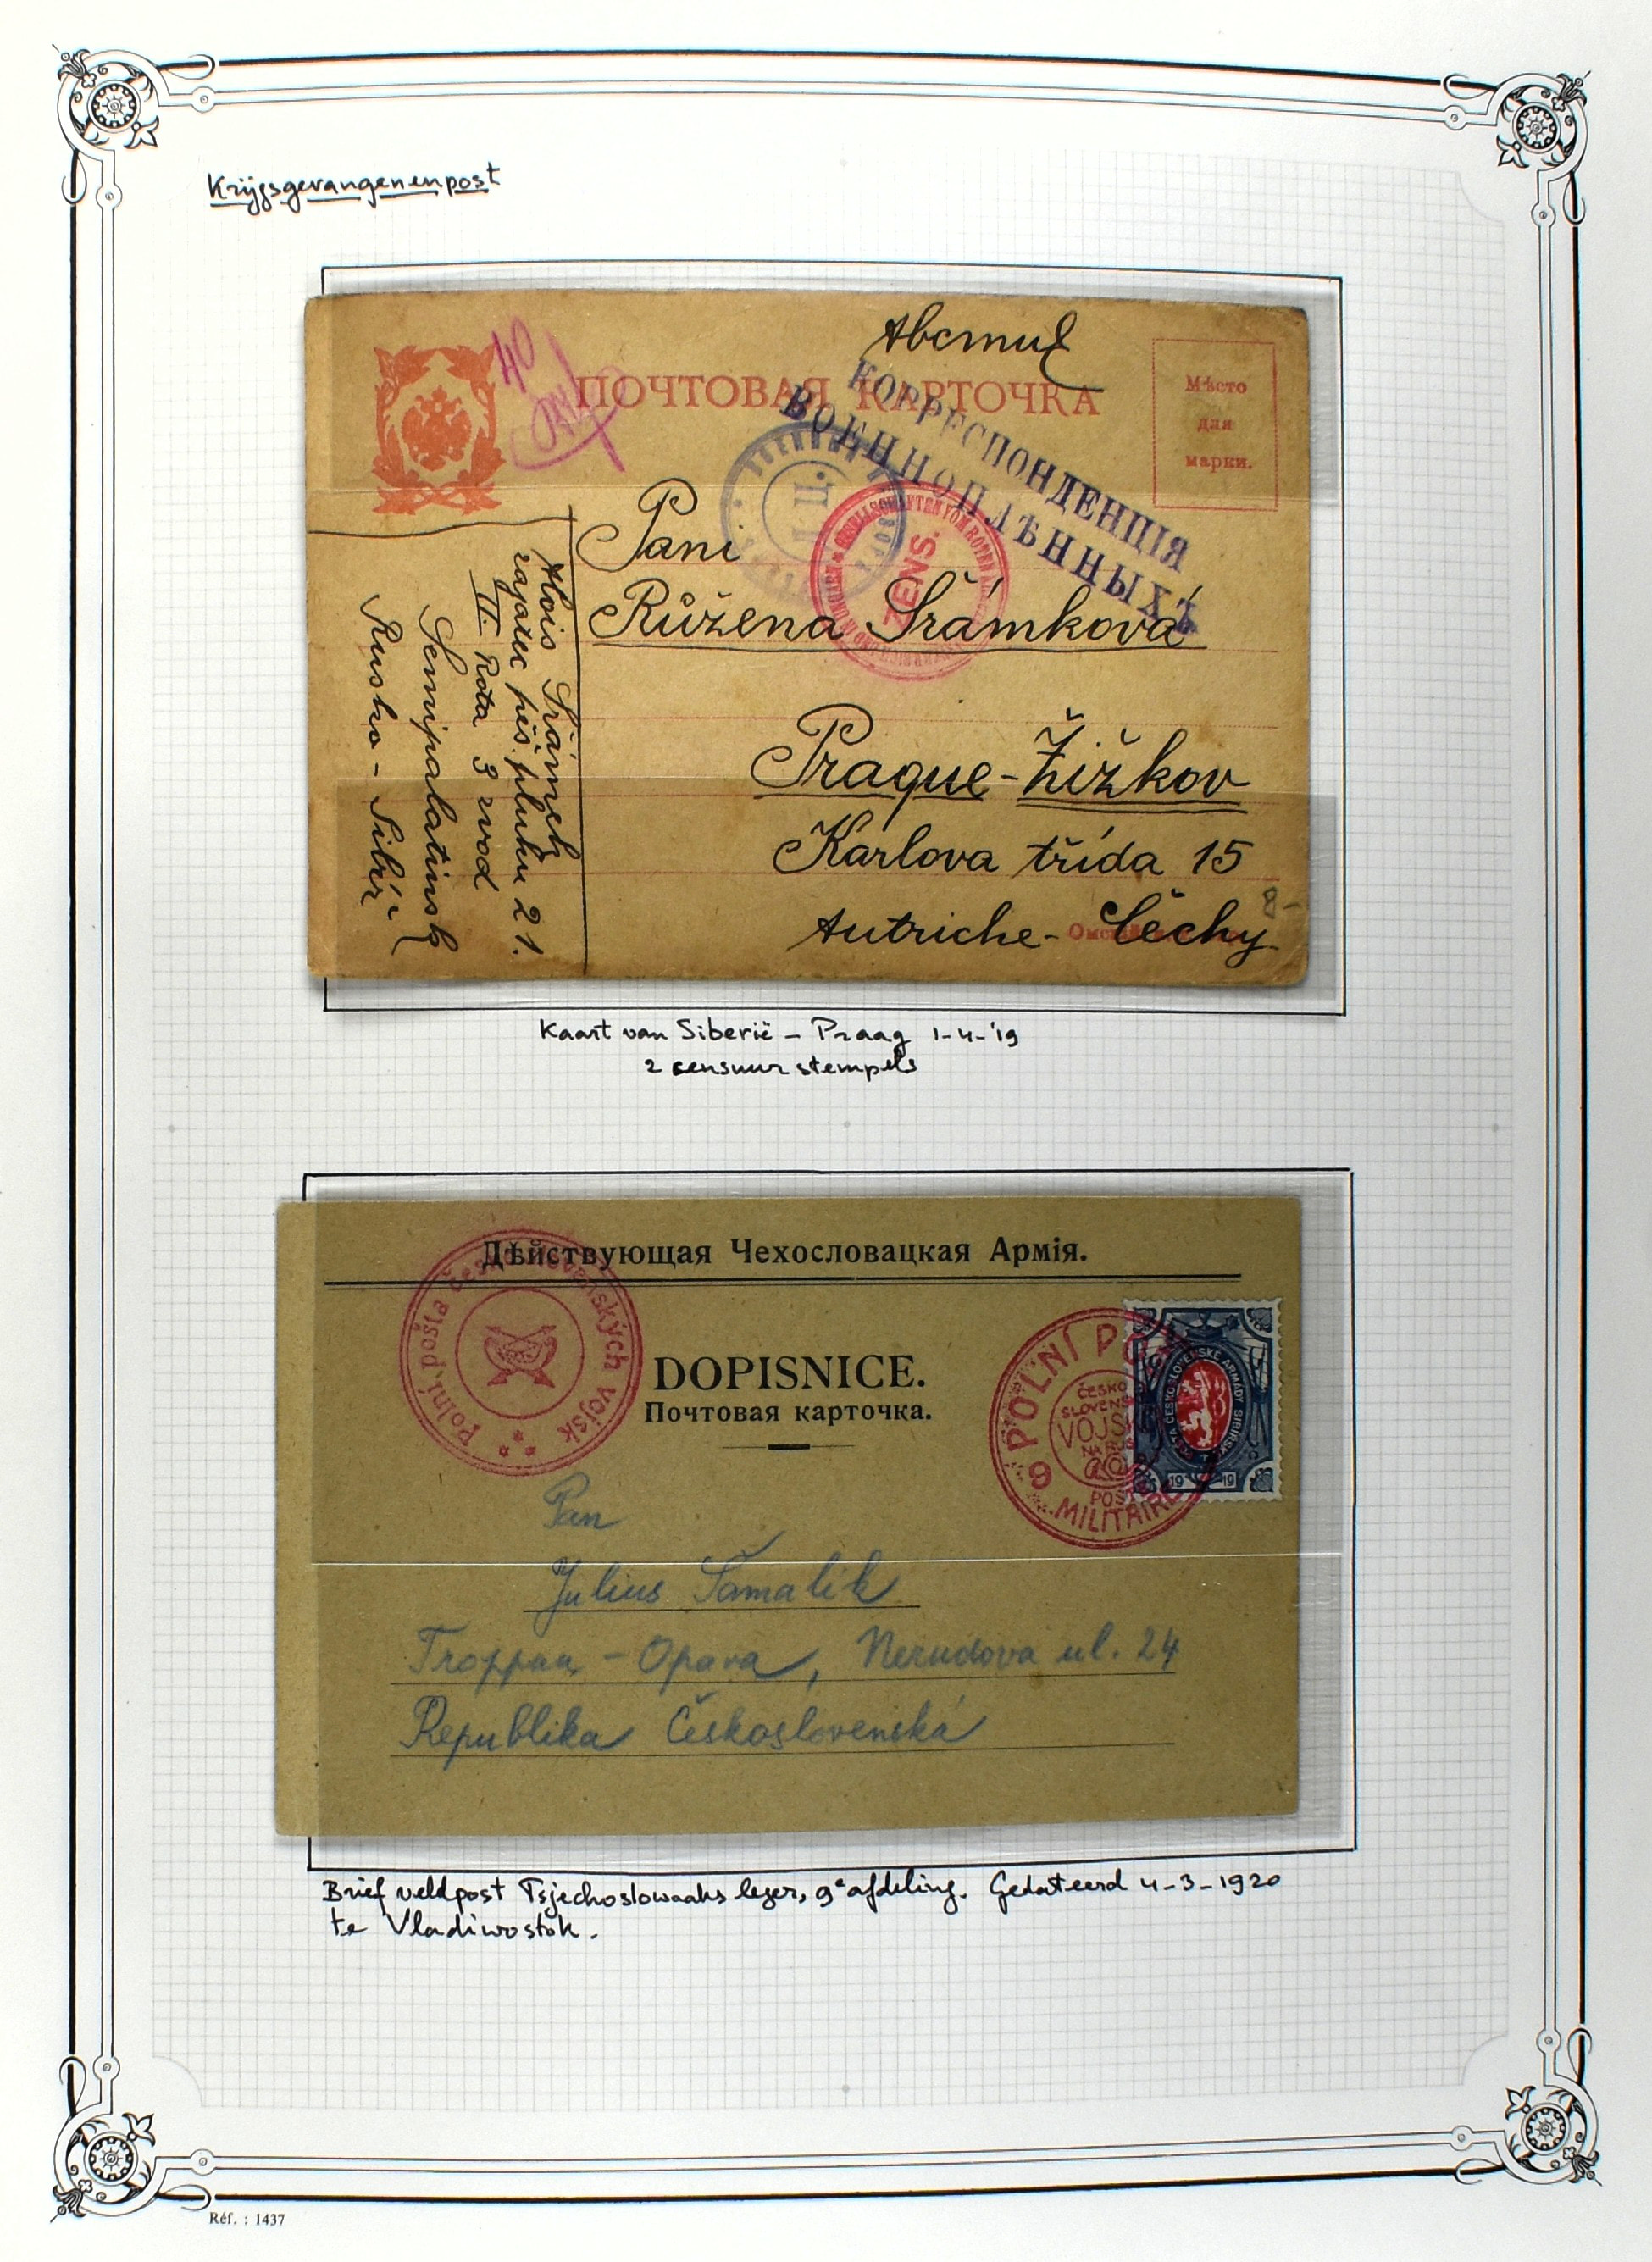 Krijgsgevangenenpost
Австріѣ
40
ПОЧТОВАЯ КАРТОЧКА
Мѣсто
для
марки.
КОРРЕСПОНДЕНЦІЯ
ВОЕННОПЛѢННЫХЪ
ZENS.
Pani
Růžena Šrámková
Prague-Žižkov
Karlova třída 15
Autriche- Čechy
8-
Alois Šrámek
zajatec pěš. pluku 21.
II. Rota 3 zvod
Semipalatinsk
Rusko - Sibiř
Kaart van Siberië - Praag 1-4-'19
2 censuur stempels
Дѣйствующая Чехословацкая Армія.
Polní pošta česko-slovenských vojsk
DOPISNICE.
Почтовая карточка.
POLNÍ
ČESKO
SLOVENS
VOJSK
NA RUSI
9
POSTE
MILITAIRE
POŠTA ČESKOSLOVENSKÉ ARMÁDY SIBIŘSKÉ
19 19
Pan
Julius Šamalík
Troppau - Opava, Nerudova ul. 24
Republika Československá
Brief veldpost Tsjechoslowaaks leger, 9e afdeling. Gedateerd 4-3-1920
te Vladiwostok.
Réf. : 1437